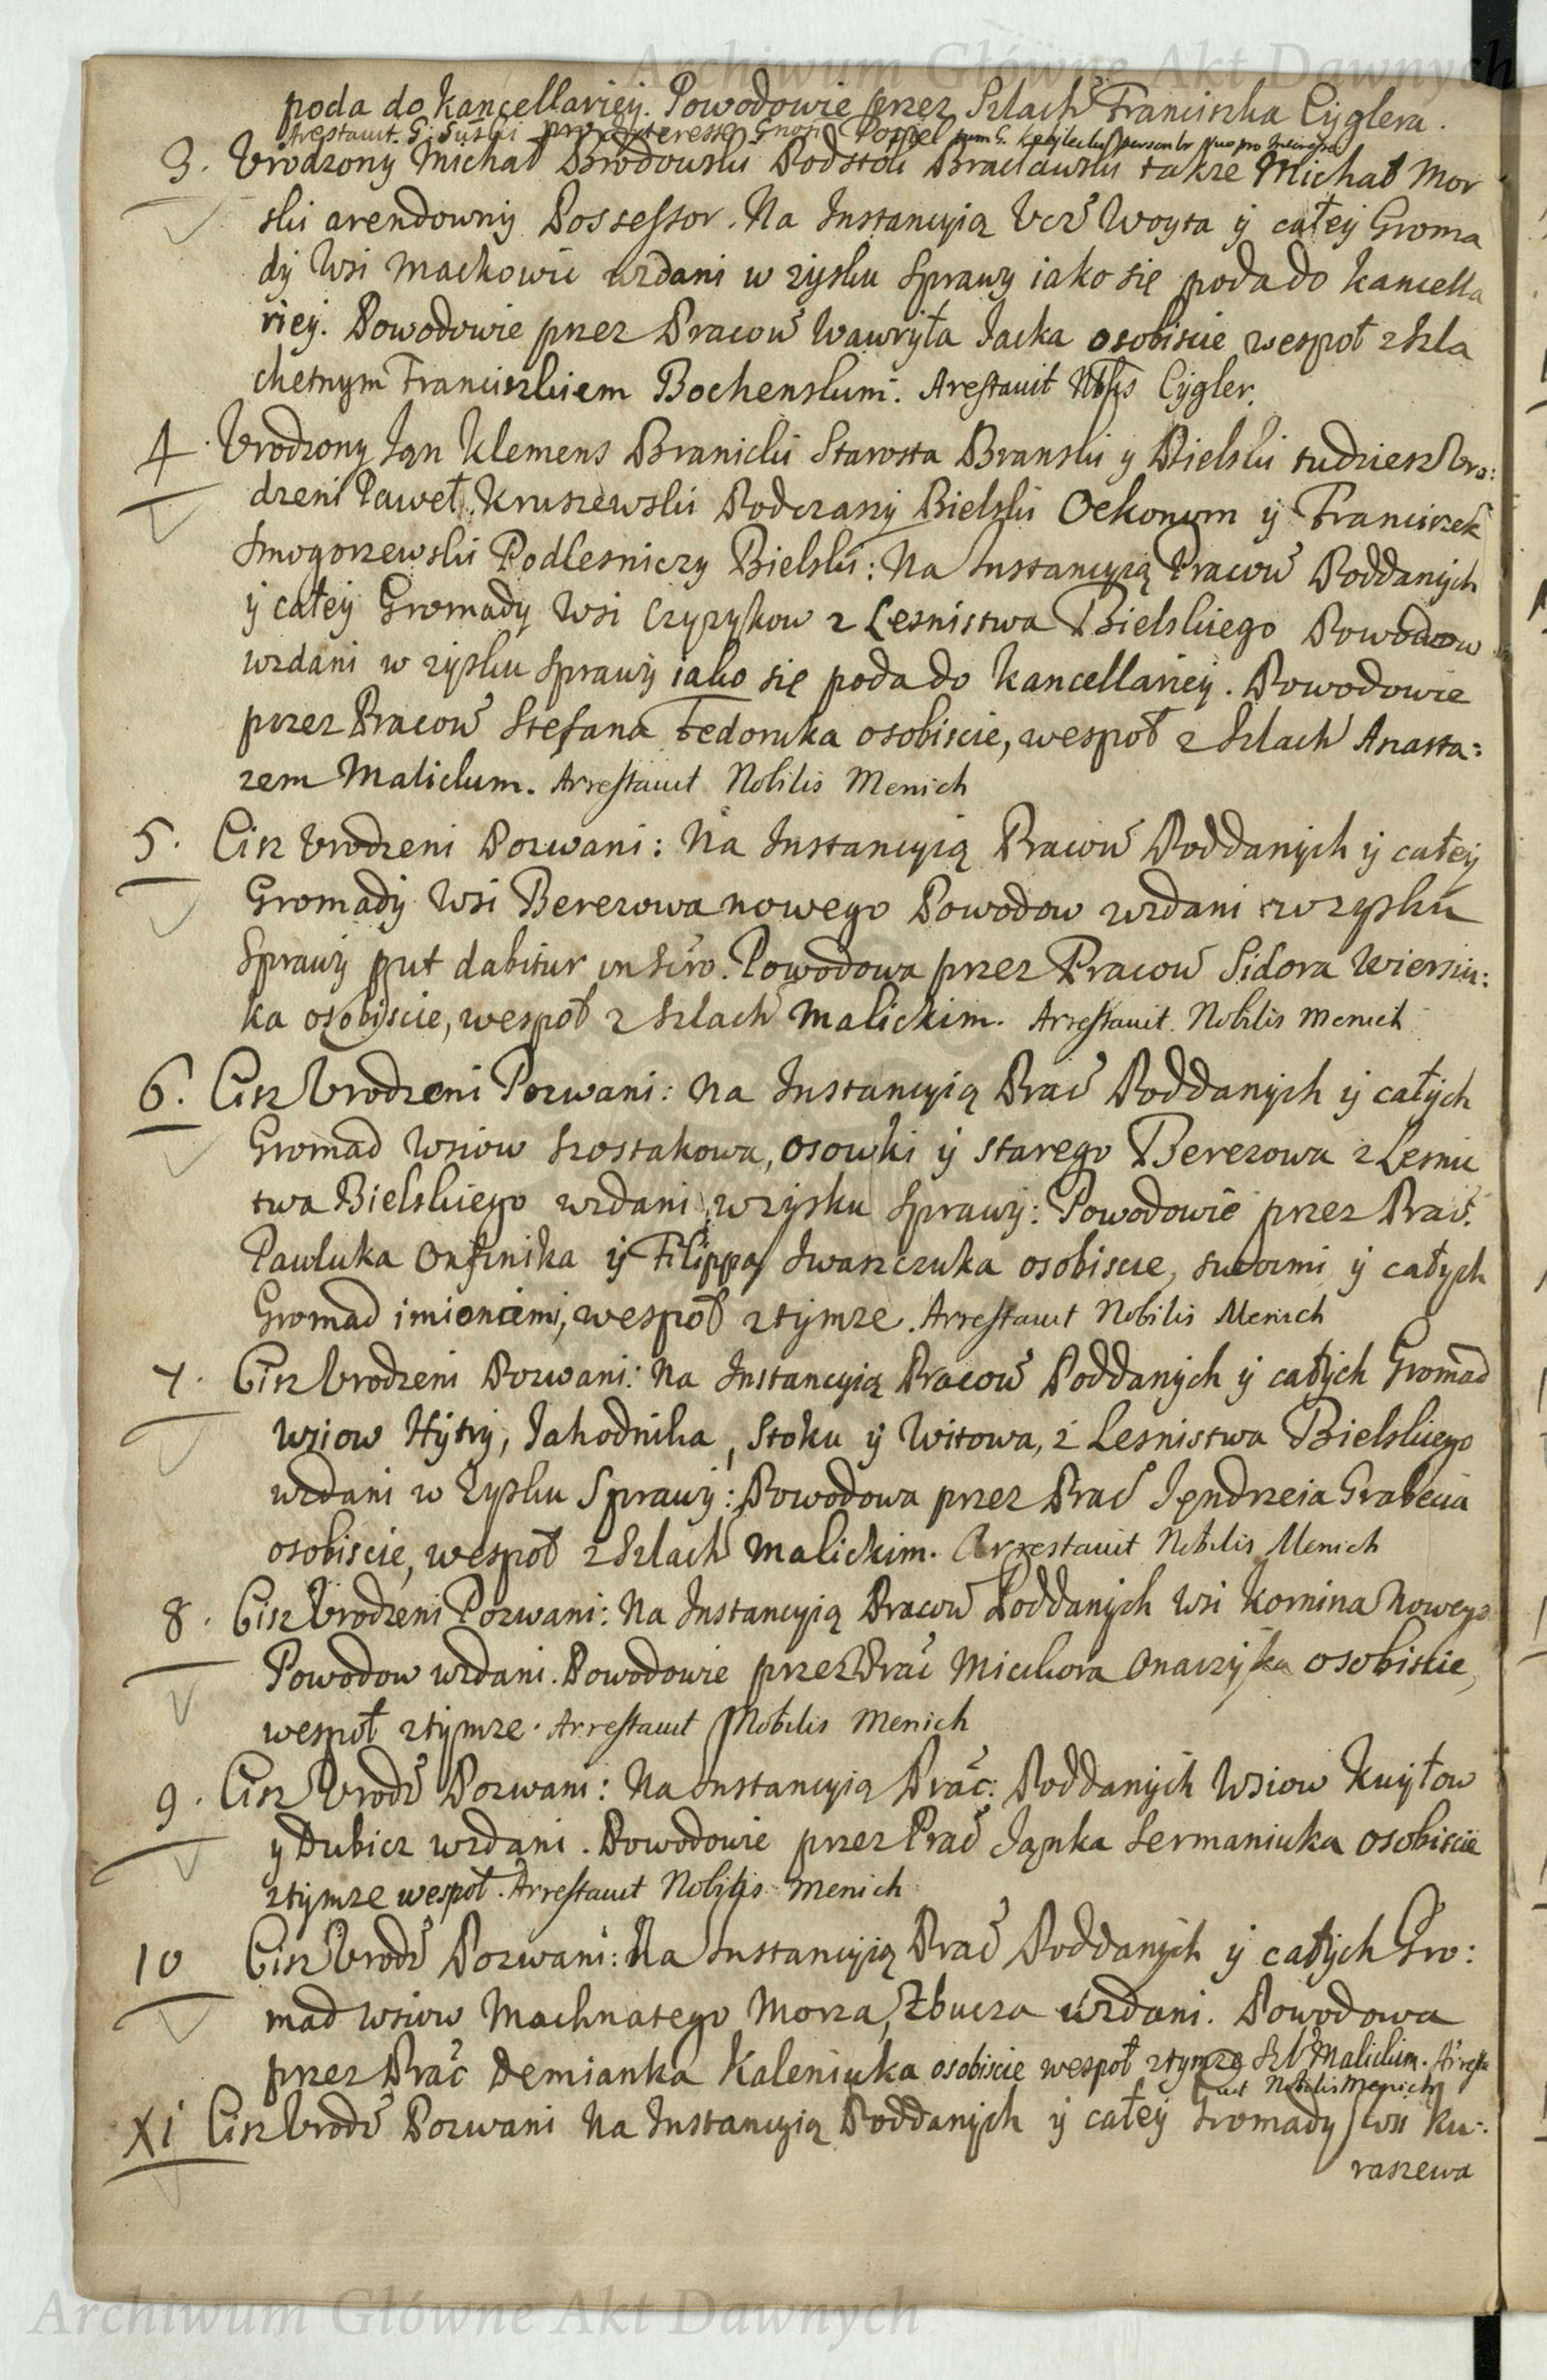 Archiwum Główne Akt Dawnych
poda do Kancellariey. Powodowie przez Szlach Franciszka Cyglera.
Arestavit G. Suski pro Interesse Gnosi Popiel cum G.
3. Urodzony Michał Brodowski Podstoli Bracławski także Michał Mor
ski arendowny Possessor. Na Instancyią Ucz Woyta y całey Groma
dy Wsi Mackowic wzdani w zysku Sprawy iako się poda do Kancella
riey. Powodowie przez Pracow Wawryła Jacka osobiscie wespoł z Szla
chetnym Franciszkiem Bochenskim. Arestavit Nblis Cygler.
4 Urodzony Jan Klemens Branicki Starosta Branski y Bielski tudziesz Uro:
dzeni Paweł Kruszewski Podczaszy Bielski Oekonom y Franciszek
Smogorzewski Podlesniczy Bielski: Na Instancyią Pracow Poddanych
y całey Gromady Wsi Czyzykow z Lesnistwa Bielskiego Powodow
wzdani w zysku Sprawy iako się poda do Kancellariey. Powodowie
przez Pracow Stefana Fedoruka osobiscie, wespoł z Szlach Anasta:
zem Malickim. Arrestavit Nobilis Menich
5. Cisz Urodzeni Pozwani: Na Instancyią Pracow Poddanych y całey
Gromady Wsi Berezowa nowego Powodow wzdani w zysku
Sprawy prut dabitur in Scro. Powodowa przez Pracow Sidora Wiersiu:
ka osobiscie, wespoł z Szlach Malickim. Arrestavit Nobilis Menich
6. Cisz Urodzeni Pozwani: Na Instancyią Prac Poddanych y całych
Gromad Wsiow Szostakowa, Osowki y starego Berezowa z Lesnic
twa Bielskiego wzdani w zysku Sprawy: Powodowie przez Prac.
Pawluka Onfinika y Filippa Iwaszczuka osobiscie, swoimi y całych
Gromad imieniemi, wespoł z tymze. Arrestavit Nobilis Menich
7. Cisz Urodzeni Pozwani: Na Instancyią Pracow Poddanych y całych Gromad
Wsiow Hytry, Jahodnika, Stoku y Witowa, z Lesnistwa Bielskiego
wzdani w Zysku Sprawy: Powodowa przez Prac Jędrzeia Grabecia
osobiscie, wespoł z Szlach Malickim. Arrestavit Nobilis Menich
8. Cisz Urodzeni Pozwani: Na Instancyią Pracow Poddanych Wsi Kornina Nowego
Powodow wzdani. Powodowie przez Prac Michora Onaczyka osobiscie,
wespoł z tymze. Arrestavit Nobilis Menich
9. Cisz Urodz Pozwani: Na Instancyią Prac: Poddanych Wsiow Kuyłow
y Dubicz wzdani. Powodowie przez Prac Janka Sermaniuka osobiscie
z tymze wespoł. Arrestavit Nobilis Menich
10 Cisz Urodz Pozwani: Na Instancyią Prac Poddanych y całych Gro:
mad Wsiow Machnatego Morza, Zbucza wzdani. Powodowa
przez Prac Demianka Kaleniuka osobiscie wespoł z tymze Szl Malickim. Arresta
vit Nobilis Menich
XI Cisz Urodz Pozwani Na Instancyią Poddanych y całey Gromady Wsi Ku:
raszewa
Archiwum Główne Akt Dawnych